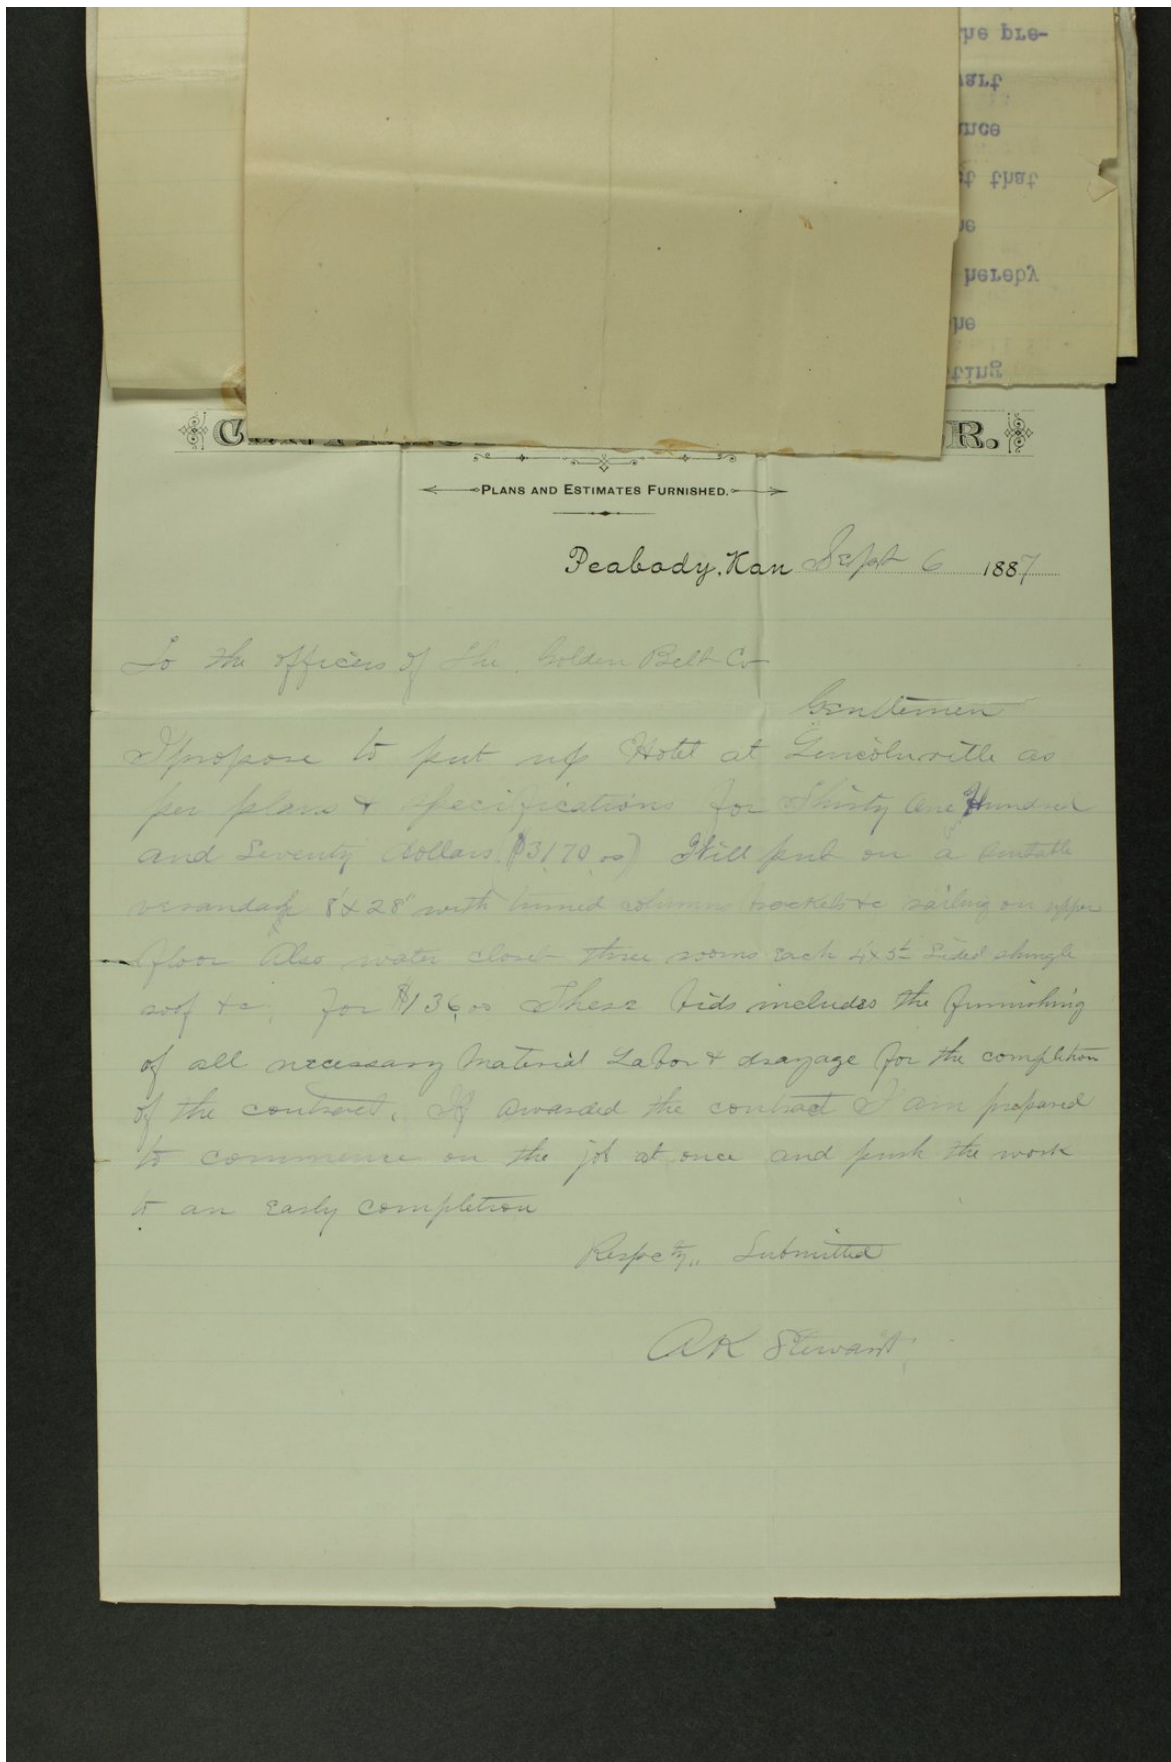 he pre-
art
nce
t that
he
hereby
he
ting
R.
PLANS AND ESTIMATES FURNISHED.
Peabody, Kan Sept 6 1887
To the officers of the Golden Belt Co
Gentlemen
I propose to put up Hotel at Lincolnville as
per plans & specifications for Thirty One Hundred
and Seventy dollars ($3170.00) Will put on a suitable
verandah 8'x28' with turned columns brackets &c railing on upper
floor Also water closet three rooms each 4x5 ft Sided shingle
roof &c. for $136.00 These bids includes the furnishing
of all necessary Material Labor & drayage for the completion
of the contract. If awarded the contract I am prepared
to commence on the job at once and push the work
to an early completion
Respcty,, Submitted
A K Stewart